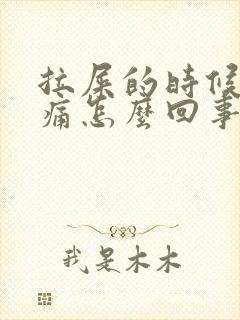 拉屎的時候
痛怎麼回事
我是木木